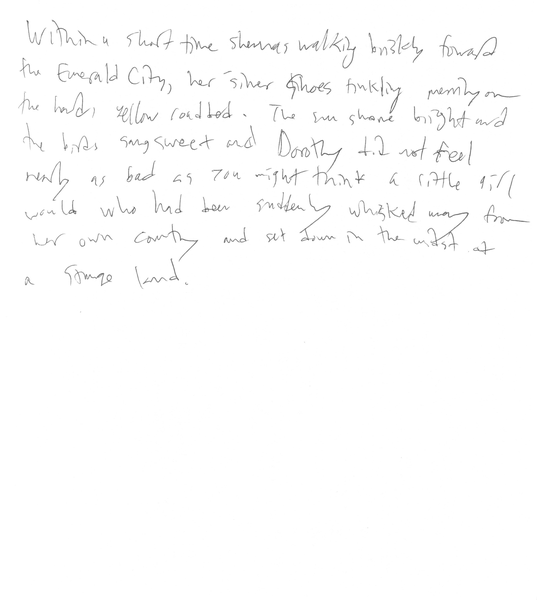 Within a short time she was walking briskly toward
the Emerald City, her silver Shoes tinkling merrily on
the hard, yellow roadbed. The sun shone bright and
the birds sang sweet and Dorothy did not feel
nearly as bad as you might think a little girl
would who had been suddenly whisked away from
her own country and set down in the midst of
a strange land.